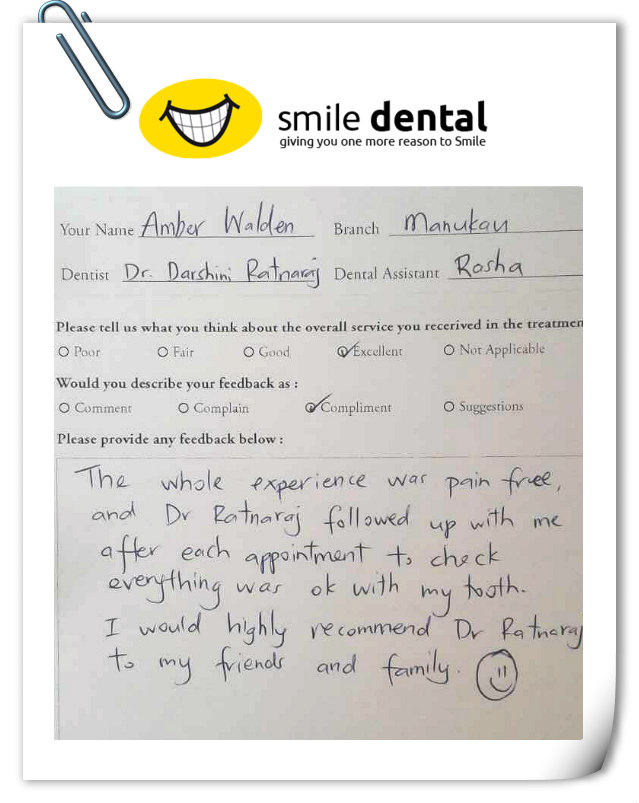 smile dental
giving you one more reason to Smile
Your Name Amber Walden Branch Manukau
Dentist Dr. Darshini Ratnaraj Dental Assistant Rosha
Please tell us what you think about the overall service you recerived in the treatmen
Poor Fair Good Excellent Not Applicable
Would you describe your feedback as :
Comment Complain Compliment Suggestions
Please provide any feedback below :
The whole experience was pain free,
and Dr Ratnaraj followed up with me
after each appointment to check
everything was ok with my tooth.
I would highly recommend Dr Ratnaraj
to my friends and family.